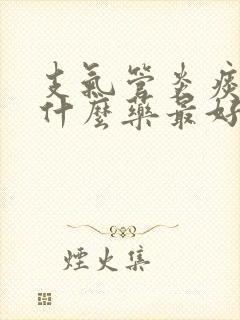 支氣管炎痰
什麼藥最好
煙火集